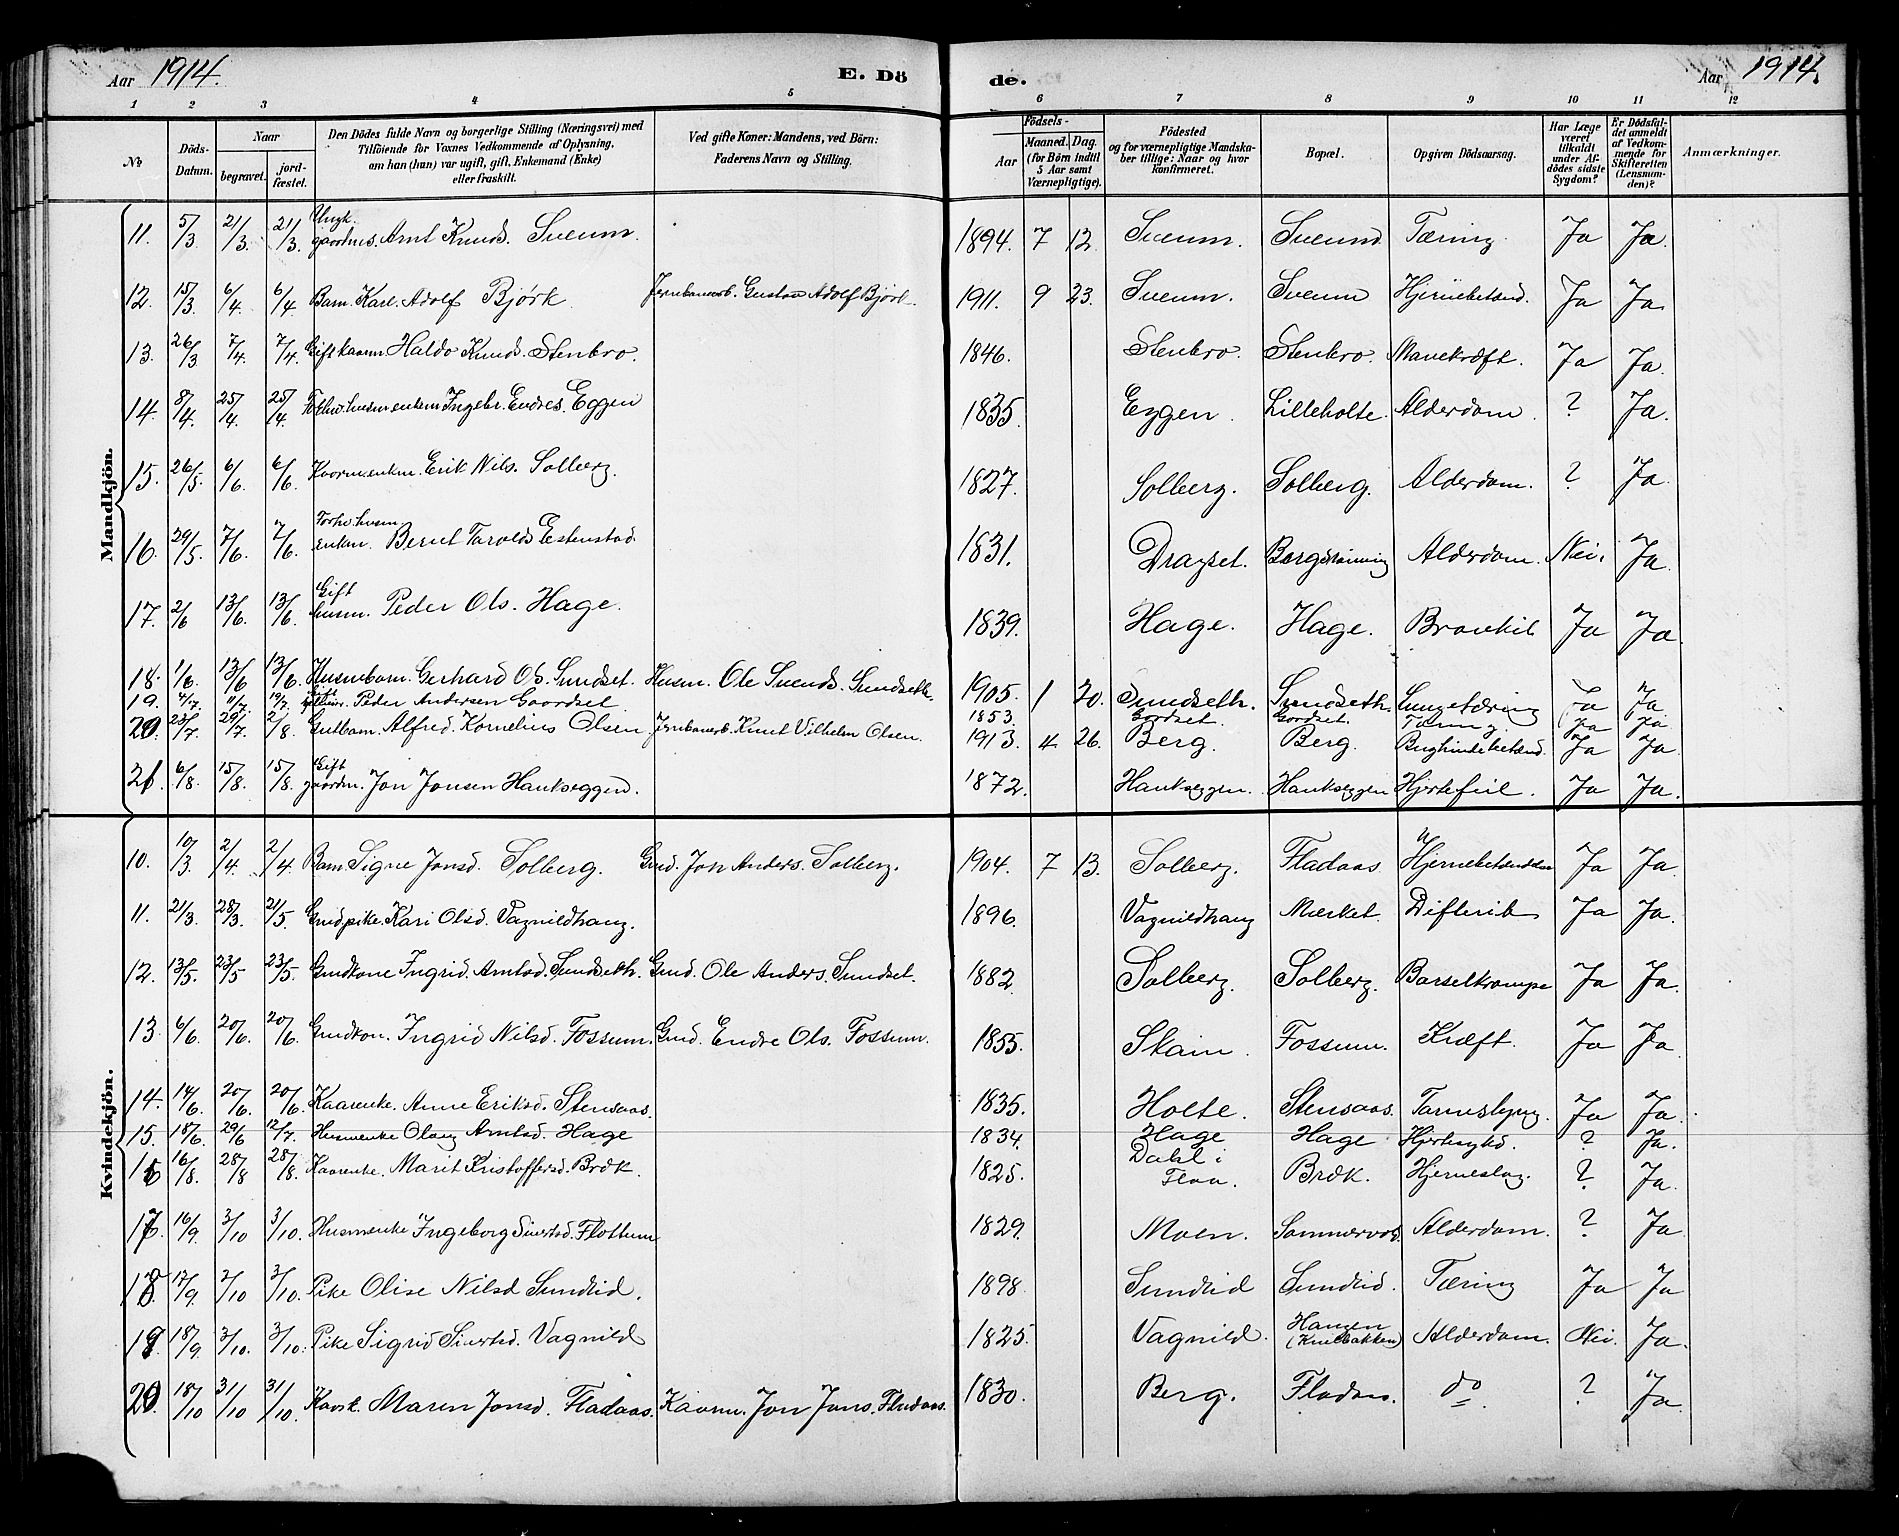 Aar 1914. E. Dö de. Aar 1914.
1 2 3 4 5 6 7 8 9 10 11 12
No Döds-Datum. Naar begravet. jord-fæstet. Den Dödes fulde Navn og borgerlige Stilling (Næringsvei) med Tilföiende for Voxnes Vedkommende af Oplysning, om han (hun) var ugift, gift, Enkemand (Enke) eller fraskilt. Ved gifte Koner: Mandens, ved Börn: Faderens Navn og Stilling. Födsels- Aar Maaned. Dag. (for Börn indtil 5 Aar samt Værnepligtige). Födested og for værnepligtige Mandskaber tillige: Naar og hvor konfirmeret. Bopæl. Opgiven Dödsaarsag. Har Læge været tilkaldt under Afdödes sidste Sygdom? Er Dödsfaldet anmeldt af Vedkommende for Skifteretten (Lensmanden)? Anmærkninger.
Mandkjön.
11. 5/3 21/3 21/3. Ungk. gaardms. Arnt Knuds. Sveum. 1894. 7 12. Sveum. Sveum Tæring Ja Ja.
12. 15/3 6/4. 6/4 Barn. Karl Adolf Björk Jernbanearb. Gustav Adolf Björk 1911. 9 23. Sveum. Sveum Hjernebetænd. Ja Ja.
13. 26/3 7/4. 7/4. Gift kaarm Haldo Knuds. Stenbro. 1846. Stenbro. Stenbro. Mavekræft. Ja Ja.
14. 8/4 25/4. 25/4. Forhv. husm. enkem Ingebr. Endres. Eggen 1835. Eggen. Lilleholte. Alderdom. ? Ja.
15. 26/5. 6/6 6/6. Kaarm.enkm. Erik Nils. Solberg. 1827. Solberg. Solberg. Alderdom. ? Ja.
16. 29/5. 7/6. 7/6. Forhv. husm enkm. Bernt Tarolds Estenstad. 1831. Drayset. Alderdom. Nei. Ja.
17. 2/6 13/6. 13/6. Gift husm. Peder Ols. Hage. 1839. Hage. Hage. Ja Ja.
18. 1/6. 13/6 13/6. Husmbarn. Gerhard Ols. Sundset. Husm. Ole Svends. Sundseth. 1905. 1 20. Sundseth. Sundseth. Lungetæring Ja Ja
19. 4/7. 11/7 19/7. Gift Peder Andersen Gaardset. 1853. Gordset. Gordset. Tæring Ja Ja
20. 23/7 29/7. 2/8. Gutbarn. Alfred Kornelius Olsen Jernbanearb. Knut Vilhelm Olsen. 1913. 4 26. Berg. Berg. Brughindebetænd. Ja Ja.
21. 6/8. 15/8. 15/8. Gift gaardm. Jon Jonsen Haukseggen. 1872. Haukseggen. Haukseggen Hjertefeil. Ja Ja.
Kvindekjön.
10. 10/3 2/4. 2/4 Barn Signe Jonsd. Solberg. Gmd. Jon Anders. Solberg. 1904. 7 13. Solberg. Fladaas Ja Ja.
11. 21/3. 28/3. 21/5 Gmdpike. Kari Olsd. Vagnildhaug. 1896. Vagnildhaug Mærket. Difterit Ja Ja.
12. 13/5. 23/5 23/5. Gmdkone Ingrid Arntsd. Sundseth. Gmd. Ole Anders. Sundset. 1882. Solberg. Solberg. Barselkrampe Ja Ja.
13. 6/6. 20/6. 20/6. Gmdkon. Ingrid Nilsd. Fossum. Gmd. Endre Ols. Fossum. 1855. Skain. Fossum. Kræft. Ja Ja
14. 14/6. 20/6. 20/6. Kaarenke. Anne Eriksd. Stensaas. 1835. Holte. Stensaas. Ja Ja.
15. 18/6. 29/6 12/7. Husmenke Olaug Arntsd. Hage 1834. Hage Hage Hjertesykd. ? Ja.
16 16/8. 28/8 28/8. Kaarenke. Marit Kristoffersd. Bræk. 1825. Dahl i Flaa. Bræk. Hjerneslag. ? Ja.
17. 16/9. 3/10 3/10. Husmenke Ingeborg Sivertsd. Flottum 1829. Moen. Alderdom. ? Ja
18. 17/9. 3/10 3/10. Pike Olise Nilsd Sundlid. 1898. Sundlid Sundlid. Tæring Ja Ja
19. 18/9. 3/10. 3/10. Pike Sigrid Sivertsd. Vagnild 1825. Vagnild. Haugen (Knutbakken) Alderdom. Nei. Ja.
20. 18/10 31/10 31/10. Kaark. Maren Jonsd. Fladaas. Kaarm. Jon Jons. Fladaas. 1830. Berg. Fladaas. do ? Ja.